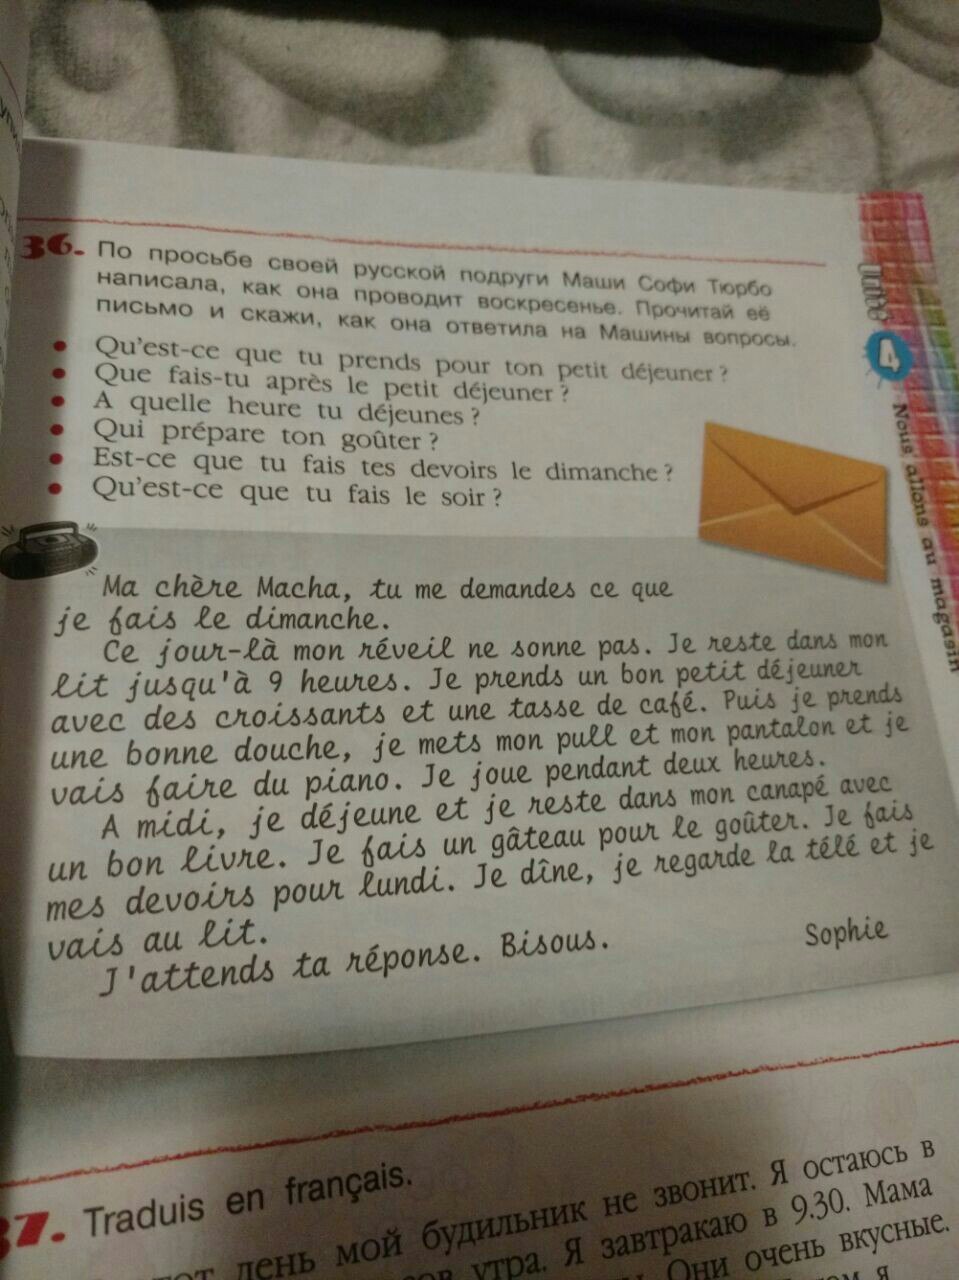 36. По просьбе своей русской подруги Маши Софи Тюрбо
написала, как она проводит воскресенье. Прочитай её
письмо и скажи, как она ответила на Машины вопросы.
• Qu'est-ce que tu prends pour ton petit déjeuner ?
• Que fais-tu après le petit déjeuner ?
• A quelle heure tu déjeunes ?
• Qui prépare ton goûter ?
• Est-ce que tu fais tes devoirs le dimanche ?
• Qu'est-ce que tu fais le soir ?
Ma chère Macha, tu me demandes ce que
je fais le dimanche.
Ce jour-là mon réveil ne sonne pas. Je reste dans mon
lit jusqu'à 9 heures. Je prends un bon petit déjeuner
avec des croissants et une tasse de café. Puis je prends
une bonne douche, je mets mon pull et mon pantalon et je
vais faire du piano. Je joue pendant deux heures.
A midi, je déjeune et je reste dans mon canapé avec
un bon livre. Je fais un gâteau pour le goûter. Je fais
mes devoirs pour lundi. Je dîne, je regarde la télé et je
vais au lit.
J'attends ta réponse. Bisous.
Sophie
4
Nous allons au magasin
37. Traduis en français.
день мой будильник не звонит. Я остаюсь в
утра. Я завтракаю в 9.30. Мама
Они очень вкусные.
я